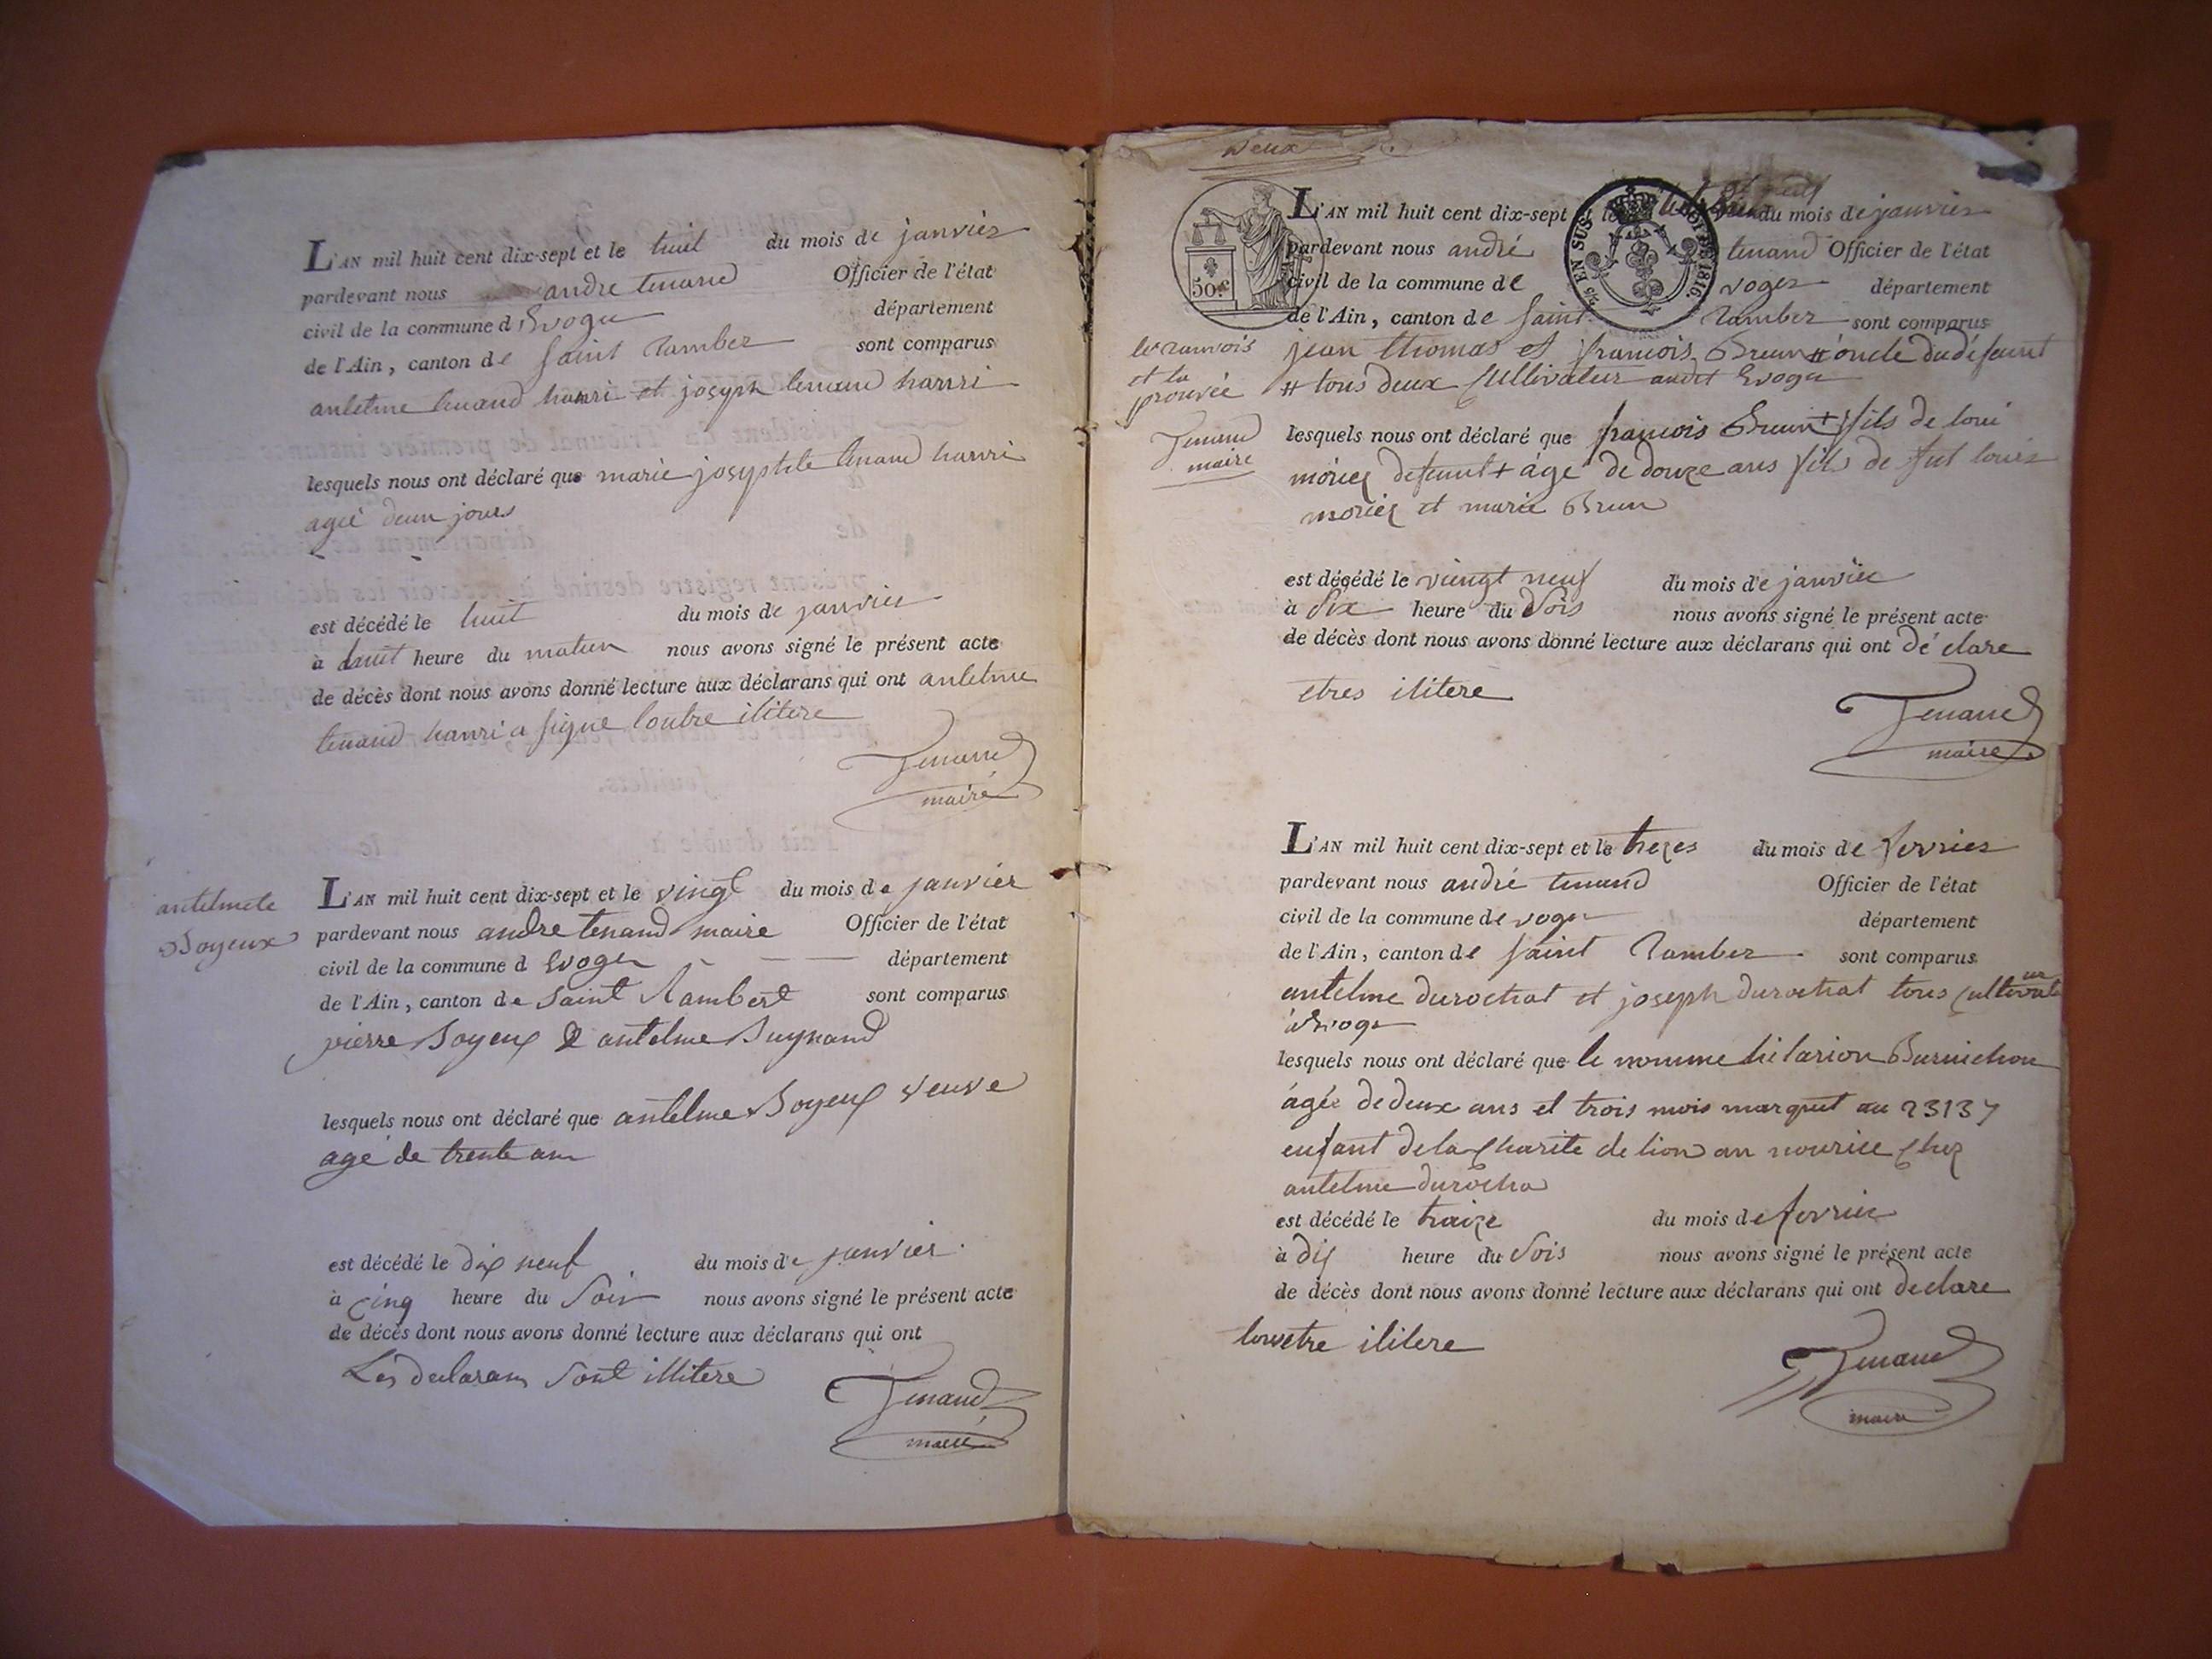 L'AN mil huit cent dix-sept et le huit du mois de janvier
pardevant nous andre tenand Officier de l'état
civil de la commune d Evoge département
de l'Ain, canton de saint Ramber sont comparus
antelme tenand hanri et joseph tenand hanri
lesquels nous ont déclaré que marie josephte tenand hanri
agé deux jours
est décédé le huit du mois de janvier
à huit heure du maten nous avons signé le présent acte
de décès dont nous avons donné lecture aux déclarans qui ont antelme
tenand hanri a signe loutre ilitere
Tenand
maire
antelme
Boyeux
L'AN mil huit cent dix-sept et le vingt du mois de janvier
pardevant nous andre tenand maire Officier de l'état
civil de la commune d Evoge département
de l'Ain, canton de Saint Rambert sont comparus
pierre Boyeux & antelme Buynand
lesquels nous ont déclaré que antelme Boyeux veuve
age de trente ans
est décédé le dix neuf du mois de janvier
à cinq heure du Soir nous avons signé le présent acte
de décès dont nous avons donné lecture aux déclarans qui ont
Les declarans sont illitere
Tenand
maire
Deux
50.c
5/c EN SUS 1816.
L'AN mil huit cent dix-sept et le du mois de janvier
pardevant nous andré tenand Officier de l'état
civil de la commune de voger département
de l'Ain, canton de saint Ramber sont comparus
le ranvois
et la
prouvée
Tenand
maire
jean thomas et francois Brun # oncle du défeunt
# tous deux cultivateur audit Evoge
lesquels nous ont déclaré que francois Brun + fils de loui
moriez defeunt + áge de douze ans fils de fut louis
moriez et marie Brun
est décédé le viengt neuf du mois de janvier
à six heure du Sois nous avons signé le présent acte
de décès dont nous avons donné lecture aux déclarans qui ont dé clare
etres ilitere
Tenand
maire
L'AN mil huit cent dix-sept et le trezes du mois de fevrier
pardevant nous andré tenand Officier de l'état
civil de la commune de voge département
de l'Ain, canton de saint Ramber sont comparus
antelme durochat et joseph durochat tous cultivateur
à Evoge
lesquels nous ont déclaré que le nomme hilarion Burnichon
ágée de deux ans et trois mois marquet au 23137
enfant de la charite de lion an nourice chez
antelme durocha
est décédé le traize du mois de fevrier
à dix heure du Sois nous avons signé le présent acte
de décès dont nous avons donné lecture aux déclarans qui ont declare
ilitere
Tenand
maire